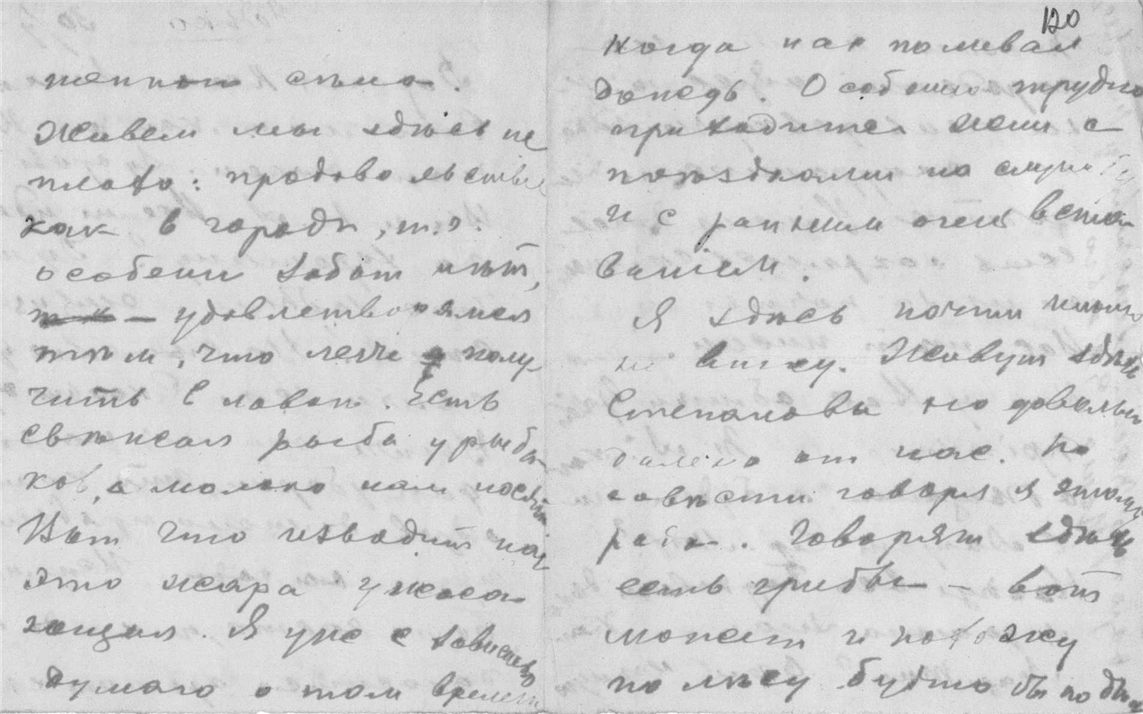 Живем мы здѣсь не
плохо: продовольствие
как в городѣ, т.ч.
особенн забот нѣт,
удовлетворяемся
тѣм, что легче полу
чить в лавкѣ. Есть
свѣжая рыба у рыба
ков, а молоко нам носят
Вот что изводит нас
это жара ужаса
ющая. Я уже с завистью
думаю о том времени
120
когда нас поливал
дождь. Особенно трудно
приходится жени с
поѣздками на службу
и с ранним очень встa
ванием.
Я здѣсь почти никого
не вижу. Живут здѣсь
Степановы но довольно
далеко от нас. По
совѣсти говоря я этому
рада. Говорят здѣсь
есть грибы – вот
может и похожу
по лѣсу будто бы по дѣлу